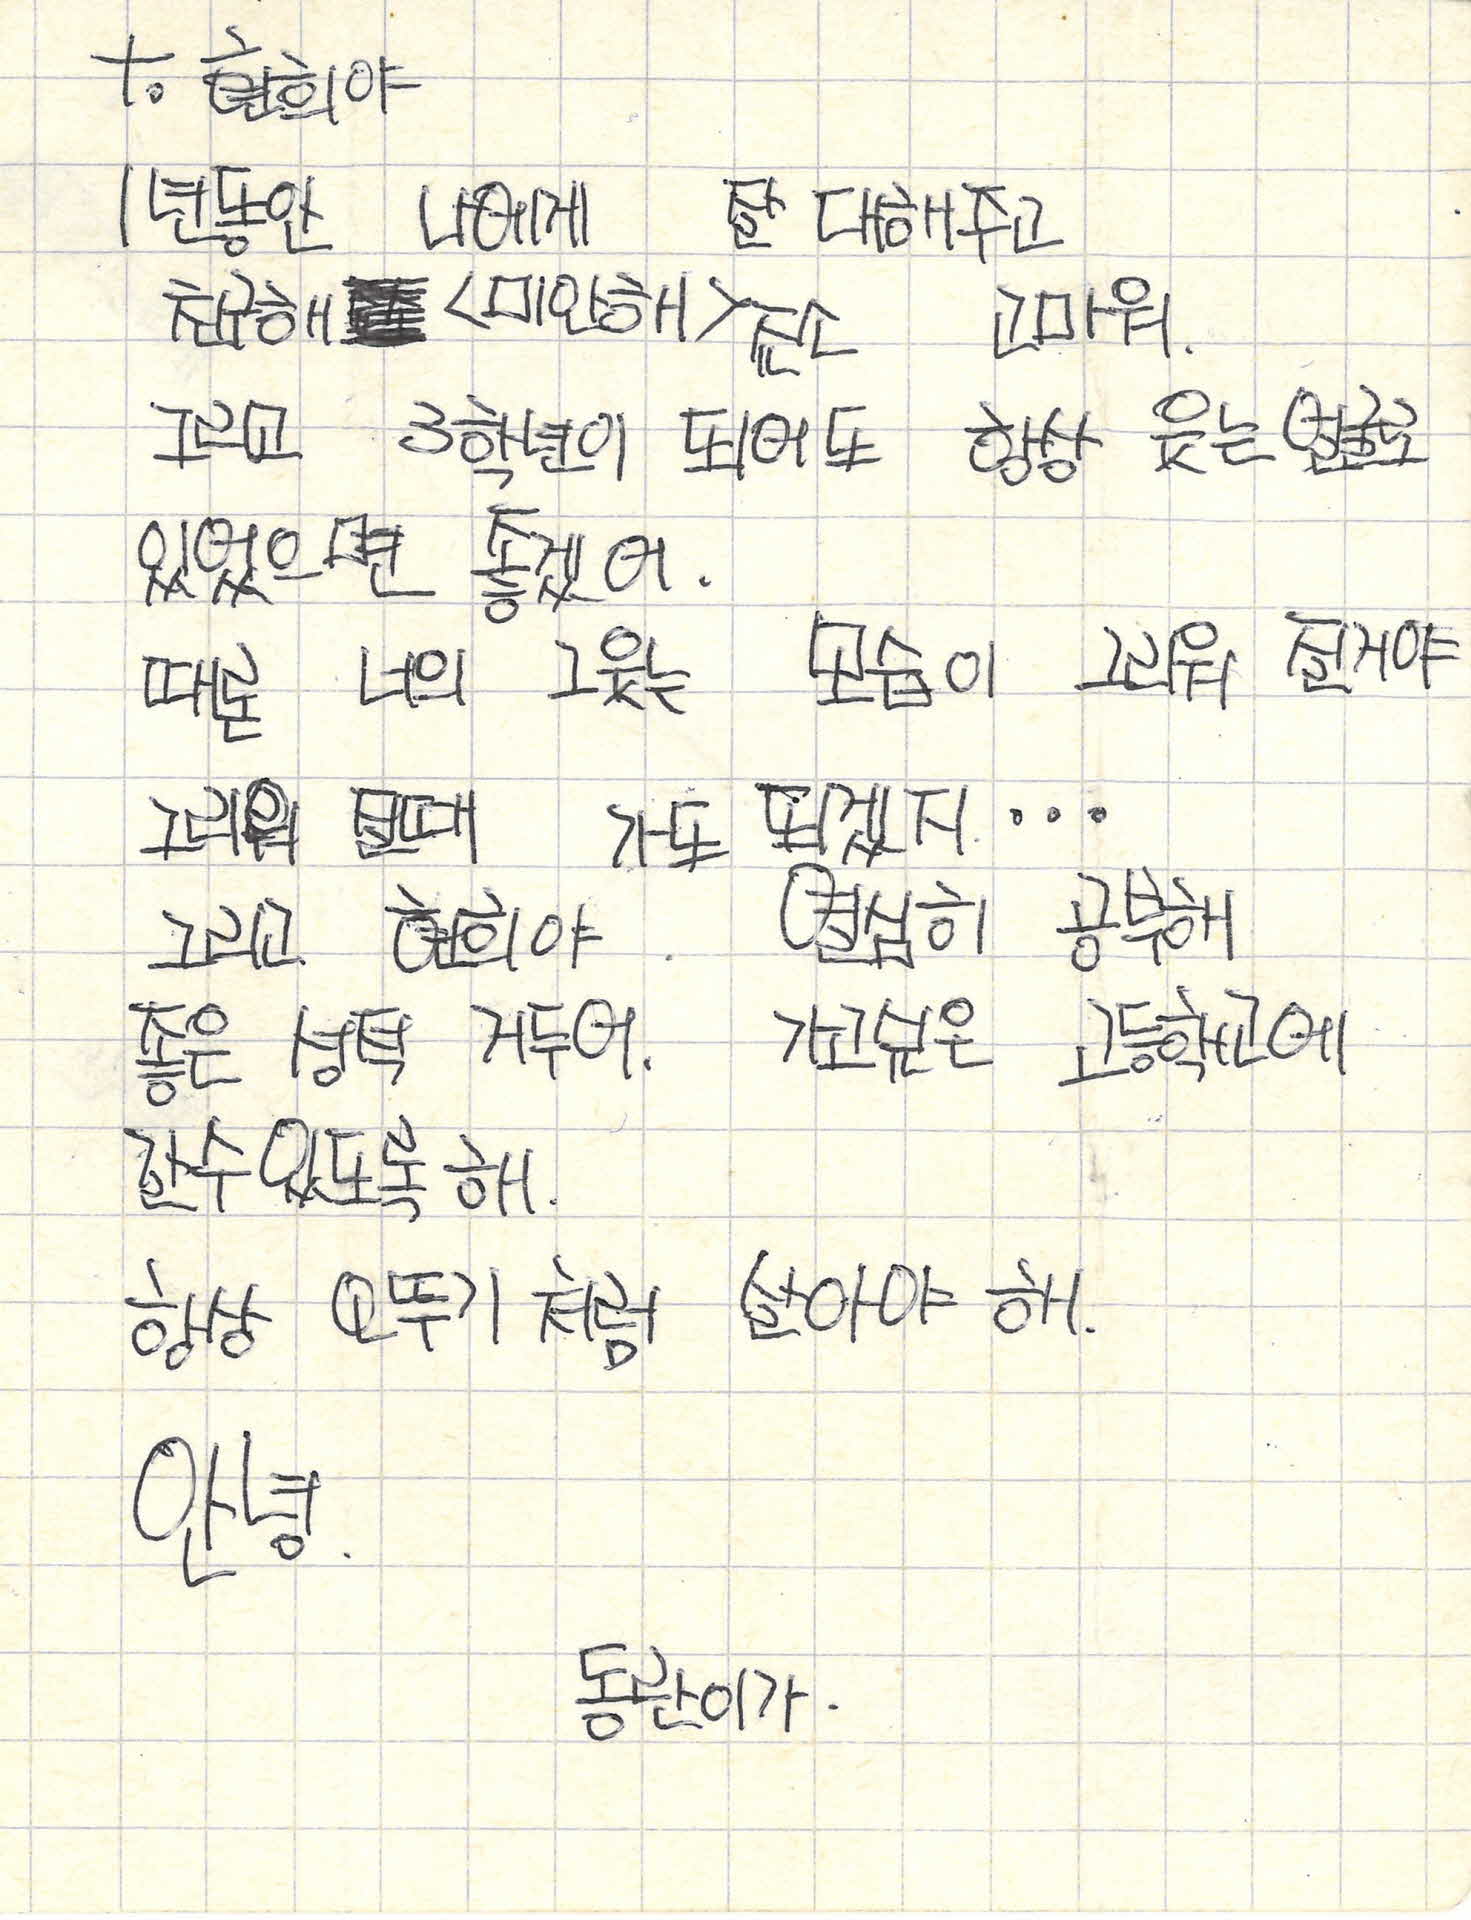 to. 현희야
1년동안 나에게 잘 대해주고
친구해 <미안해> 고마워.
그리고 3학년이 되어도 항상 웃는 얼굴로
있었으면 좋겠어.
때론 너의 그웃는 모습이 그리워 질거야
그리워 질때 가도 되겠지...
그리고 현희야 열심히 공부해
좋은 성적 거두어. 가고싶은 고등학교에
갈수있도록 해.
항상 오뚜기 처럼 살아야 해.
안녕.
동관이가.